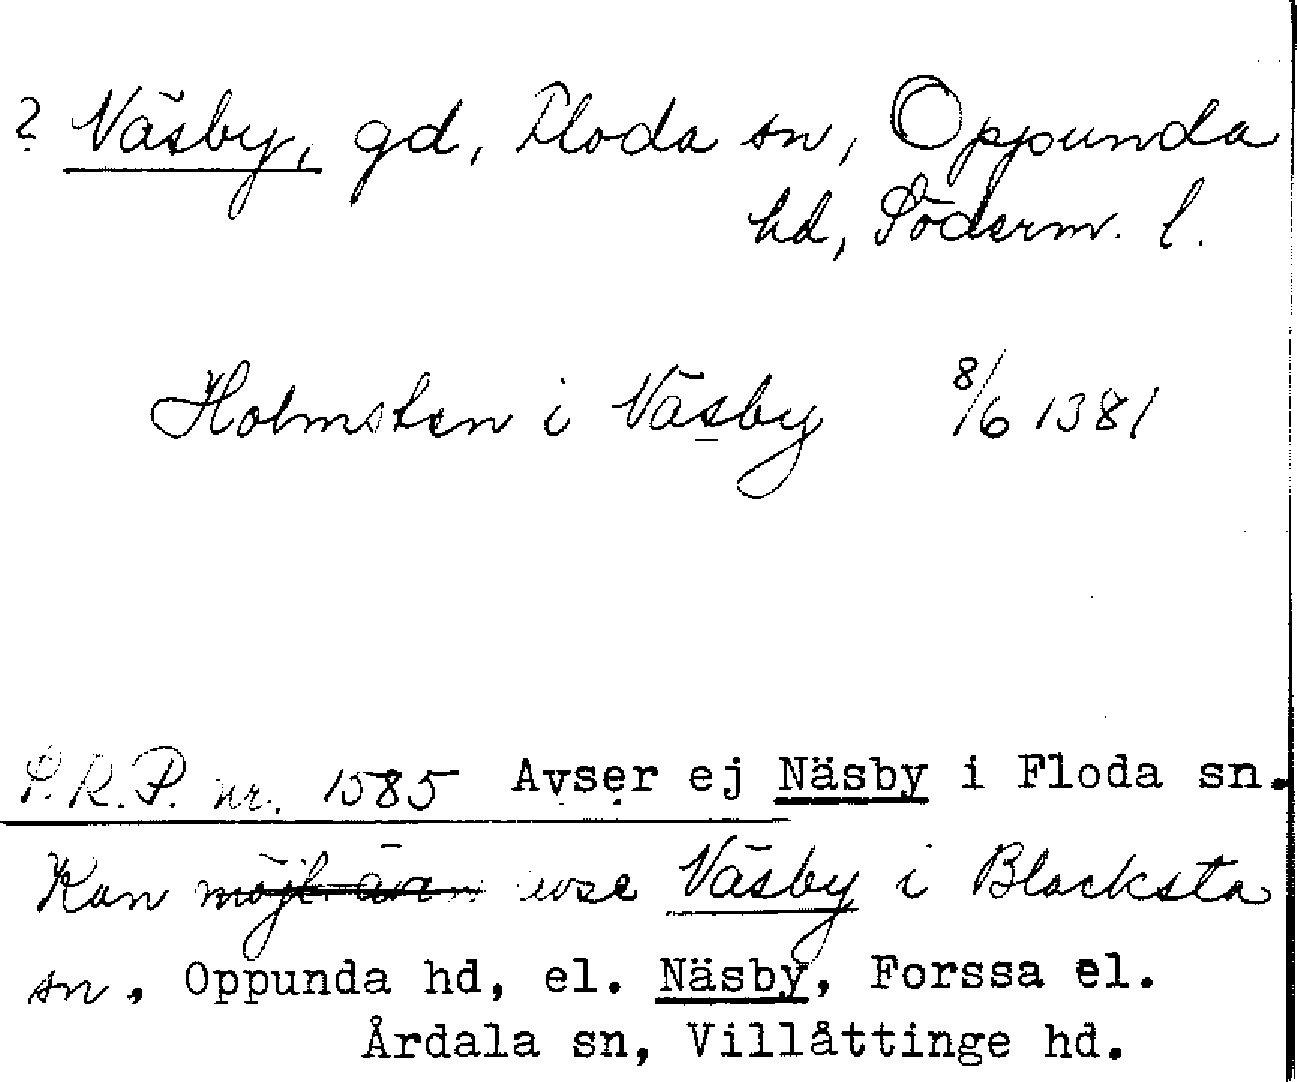 ? Näsby, gd, Floda sn, Oppunda
hd, Söderm. l.
Holmsten i Näsby 8/6 1381
S.R.P. nr. 1585 Avser ej Näsby i Floda sn.
Kan möjl. även avse Näsby i Blacksta
sn, Oppunda hd, el. Näsby, Forssa el.
Årdala sn, Villåttinge hd.